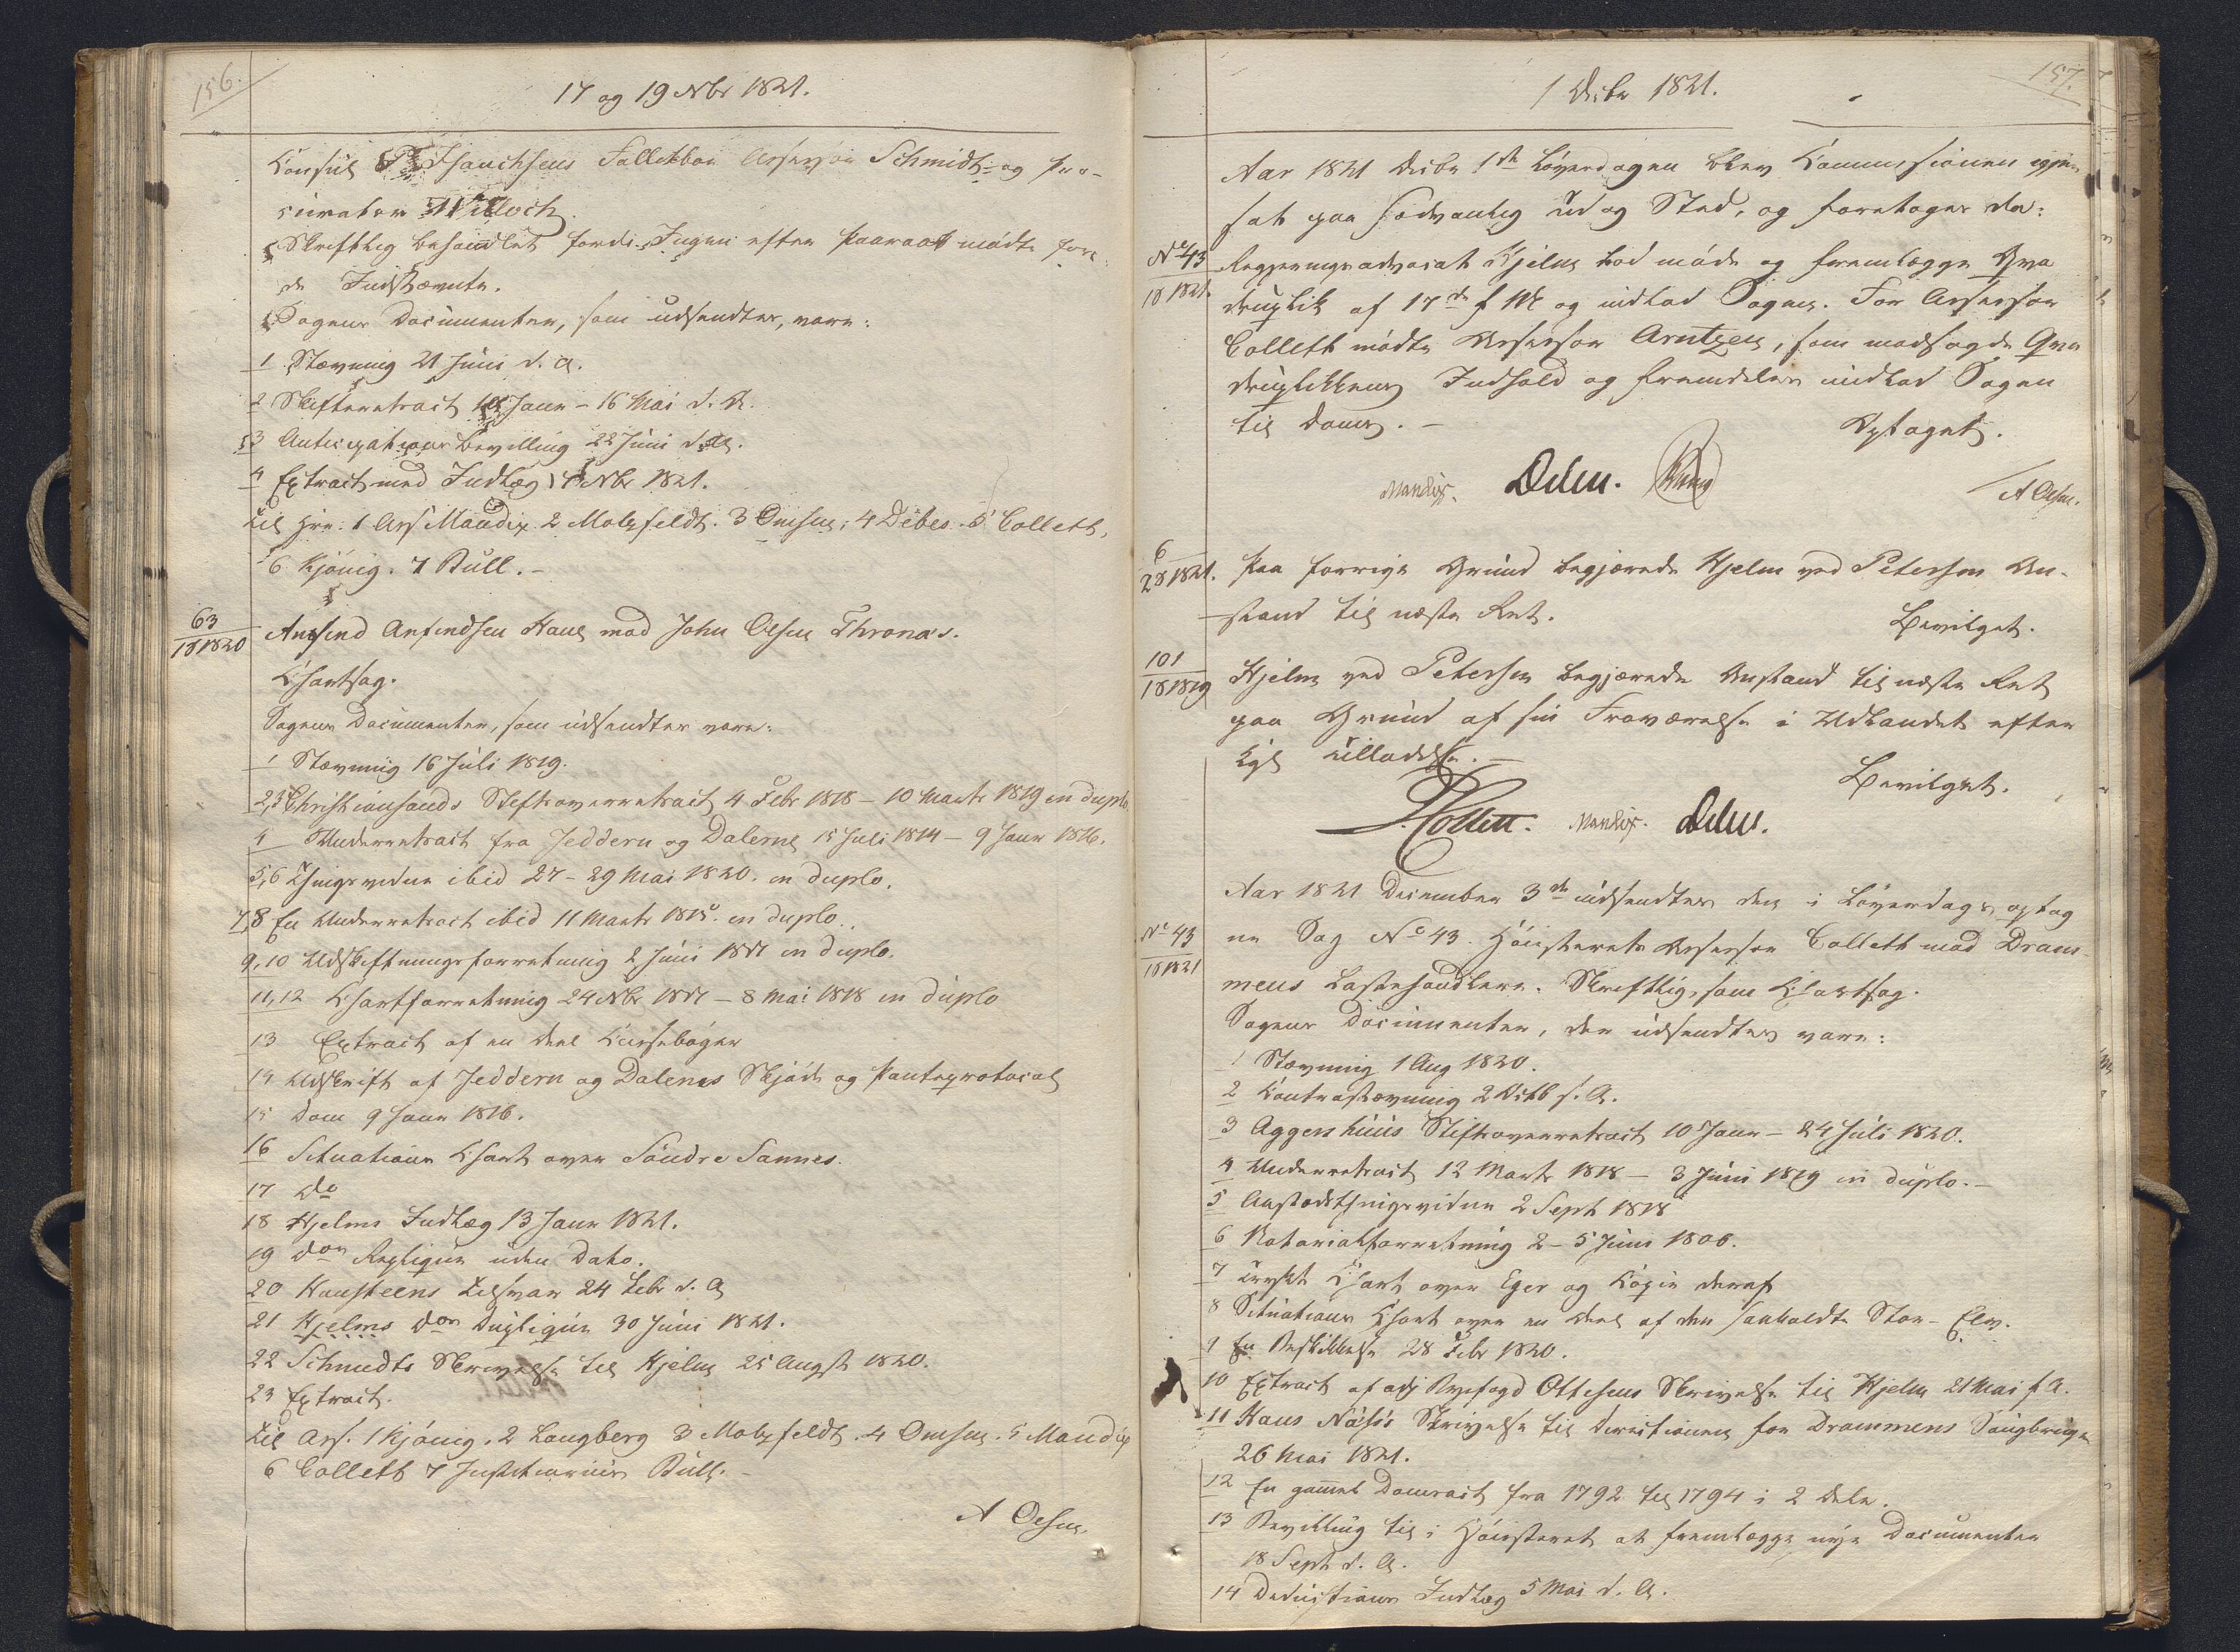 156.
17 og 19 Nbr 1821.
Konsul P Isaachsens Fallitboe Assessor Schmidt og Pro-
curator Willoch.
Skriftlig behandlet fordi Ingen efter Paaraab mødte for
de Indstævnte.
Sagens Documenter, som udsendtes, vare:
1 Stævning 21 Juni d. A.
2 Skifteretsact Janr – 16 Mai d. A.
3 Anticipations Bevilling 22 Juni d. A.
4 Extract med Indlæg 17 Nbr 1821.
til Hrr: 1 Ass Mandix 2 Motzfeldt. 3 Omsen; 4 Debes. 5 Collett,
6 Kjönig. 7 Bull. –
63
18 1820
Anfind Anfindsen Haus mod John Olsen Thronæs.
Khartsag.
Sagens Documenter, som udsendtes vare:
1 Stævning 16 Juli 1819.
2,3 Christiansands Stiftsoverretsact 4 Febr 1818 – 10 Marts 1819 in duplo
4 Underretsact fra Jeddern og Dalerne 15 Juli 1814 – 9 Janr 1816.
5,6 Thingsvidne ibid 27 – 29 Mai 1820. in duplo.
7,8 En Underretsact ibid 11 Marts 1815. in duplo.
9,10 Udskiftningsforretning 2 Juni 1817 in duplo.
11,12 Khartforretning 24 Nbr 1817 – 8 Mai 1818 in duplo
13 Extract af en Deel Kirkebøger
14 Udskrift af Jeddern og Dalenes Skjøde og Panteprotocol
15 Dom 9 Janr 1816.
16 Situations Khart over Söndre Sannes.
17 do
18 Hjelms Indlæg 13 Janr 1821.
19 don Replique uden Dato.
20 Hansteens Tilsvar 24 Febr d. A
21 Hjelms don Duplique 30 Juni 1821.
22 Schmidts Skrivelse til Hjelm 25 Augst 1820.
23 Extract.
til Ass. 1 Kjönig, 2 Langberg 3 Motzfeldt. 4 Omsen. 5 Mandix
6 Collett 7 Justitiarius Bull. –
A Olsen
157.
1 Decbr 1821.
Aar 1821 Decbr 1ste Løverdagen blev Kommissionen igjen
sat paa sædvanlig Tid og Sted, og foretoges da:
No 43
18 1821.
Regjeringsadvocat Hjelm lod møde og fremlægge Qva
druplik af 17de f M og indlod Sagen. For Assessor
Collett mødte Assessor Arntzen, som modsagde Qva
druplikkens Indhold og fremdeles indlod Sagen
til Doms. –
Optaget.
Mandix. Debes.
A Olsen.
6
28 1821.
Paa forrige Grund begjærede Hjelm ved Petersen An-
stand til næste Ret.
Bevilget.
101
18 1819
Hjelm ved Petersen begjærede Anstand til næste Ret
paa Grund af sin Fraværelse i Udlandet efter
Kgl Tilladelse. –
Bevilget.
Collett. Mandix. Debes.
Aar 1821 December 3de udsendtes den i Løverdags optag
No 43
18 1821
ne Sag No 43. Høiesterets Assessor Collett mod Dram-
mens Lasthandlere. Skriftlig, som Khartsag.
Sagens Documenter, der udsendtes vare:
1 Stævning 1 Aug 1820.
2 Contrastævning 2 Octb s. A.
3 Aggershuus Stiftsoverretsact 10 Janr – 24 Juli 1820.
4 Underretsact 12 Marts 1818 – 3 Juni 1819 in duplo. –
5 Aastedsthingsvidne 2 Sept 1818
6 Notarialforretning 2 – 5 Juni 1806.
7 Trykt Khart over Eger og Kopie deraf
8 Situations Khart over en Deel af den saakaldte Stor-Elv.
9 En Beskikkelse 28 Febr 1820.
10 Extract af adj Byefogd Ottesens Skrivelse til Hjelm 21 Mai f A.
11 Hans Næss's Skrivelse til Directionen for Drammens Saugbruge
26 Mai 1821.
12 En gammel Domsact fra 1792 til 1794 i 2 Dele.
13 Bevilling til i Høiesteret at fremlægge nye Documenter
18 Sept d. A.
14 Deductions Indlæg 5 Mai d. A.